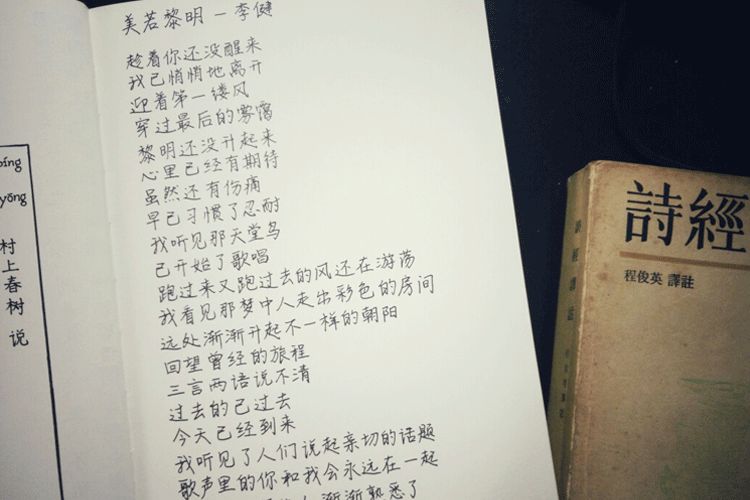 美若黎明 — 李健
趁着你还没醒来
我已悄悄地离开
迎着第一缕风
穿过最后的雾霭
黎明还没升起来
心里已经有期待
虽然还有伤痛
早已习惯了忍耐
我听见那天堂鸟
已开始了歌唱
跑过来又跑过去的风还在游荡
我看见那梦中人走出彩色的房间
远处渐渐升起不一样的朝阳
回望曾经的旅程
三言两语说不清
过去的已过去
今天已经到来
我听见了人们说起亲切的话题
歌声里的你和我会永远在一起
渐渐熟悉了
bíng
yǒng
村上春树说
詩經
程俊英 譯註
詩經譯註